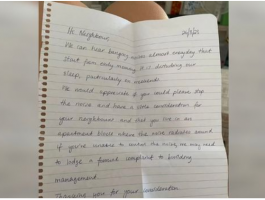 Hi Neighbour,
We can hear banging noises almost everyday that
start from early morning. It is disturbing our
sleep, particularly on weekends.
We would appreciate if you could please stop
the noise and have a little consideration for
your neighbours and that you live in an
apartment block where the noise radiates around
If you're unable to control the noise, we may need
to lodge a formal complaint to building
management.
Thanking you for your consideration